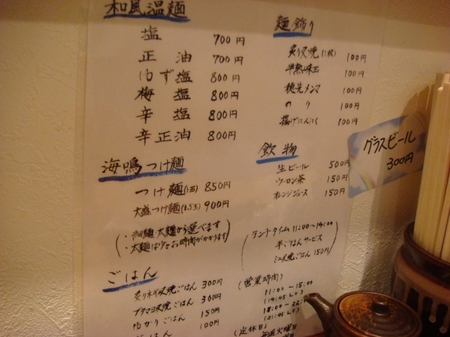 和風温麺
塩 700円
正油 700円
ゆず塩 800円
梅塩 800円
辛塩 800円
辛正油 800円
海鳴つけ麺
つけ麺 850円
大盛つけ麺(1.5玉) 900円
ごはん
300円
300円
ゆかりごはん 150円
ごはん 100円
麺飾り
炙り叉焼 100円
半熟味玉 100円
穂先メンマ 100円
のり 100円
揚げにんにく 100円
飲物
生ビール 500円
ウーロン茶 150円
オレンジジュース 150円
(ランチタイム 11:00〜14:00
半ごはんサービス
150円)
(営業時間)
(定休日)
グラスビール
300円